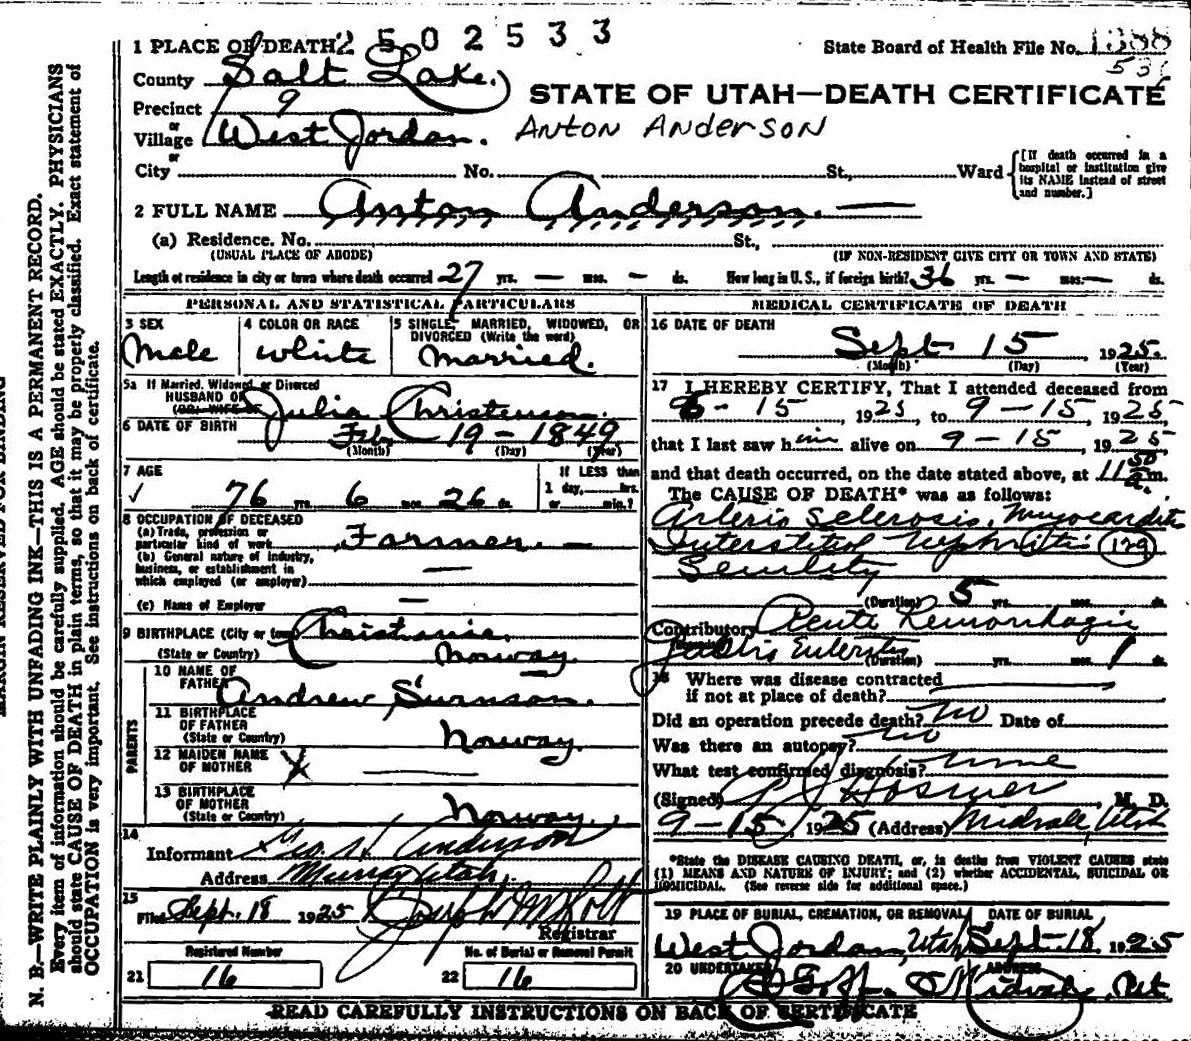 N. B.—WRITE PLAINLY WITH UNFADING INK—THIS IS A PERMANENT RECORD.
Every item of information should be carefully supplied. AGE should be stated EXACTLY. PHYSICIANS
should state CAUSE OF DEATH in plain terms, so that it may be properly classified. Exact statement of
OCCUPATION is very important. See instructions on back of certificate.
2502533
1 PLACE OF DEATH
State Board of Health File No. 1388
County Salt Lake.
STATE OF UTAH—DEATH CERTIFICATE
Precinct 9
or
Village West Jordan. Anton Anderson
or
City No. St., Ward
[If death occurred in a hospital or institution give its NAME instead of street and number.]
2 FULL NAME Anton Anderson.
(a) Residence. No. St.,
(USUAL PLACE OF ABODE) (IF NON-RESIDENT GIVE CITY OR TOWN AND STATE)
Length of residence in city or town where death occurred 27 yrs. — mos. — ds. How long in U. S., if foreign birth? 36 yrs. — mos. — ds.
PERSONAL AND STATISTICAL PARTICULARS
3 SEX Male
4 COLOR OR RACE white
5 SINGLE, MARRIED, WIDOWED, OR DIVORCED (Write the word) Married.
5a If Married, Widowed or Divorced
HUSBAND OF
(OR) WIFE OF Julia Christenson.
6 DATE OF BIRTH Feb 19 - 1849
(Month) (Day) (Year)
7 AGE 76 yrs. 6 mos. 26 ds.
If LESS than 1 day, hrs. or min.?
8 OCCUPATION OF DECEASED
(a) Trade, profession or particular kind of work Farmer. —
(b) General nature of industry, business, or establishment in which employed (or employer) —
(c) Name of Employer —
9 BIRTHPLACE (City or town) Christania.
(State or Country) Norway.
PARENTS
10 NAME OF FATHER Andrew
11 BIRTHPLACE OF FATHER
(State or Country) Norway.
12 MAIDEN NAME OF MOTHER X —
13 BIRTHPLACE OF MOTHER
(State or Country) Norway.
14 Informant Geo. H. Anderson
Address Murray Utah.
15 Filed Sept. 18 1925 Joseph M. Holt
Registrar
Registered Number No. of Burial or Removal Permit
21 16 22 16
MEDICAL CERTIFICATE OF DEATH
16 DATE OF DEATH
Sept 15, 1925.
(Month) (Day) (Year)
17 I HEREBY CERTIFY, That I attended deceased from
- 15 1925 to 9 - 15, 1925,
that I last saw him alive on 9 - 15, 1925
and that death occurred, on the date stated above, at 11 50 m.
The CAUSE OF DEATH* was as follows:
Arterio Sclerosis, Myocarditis
Interstitial Nephritis 129
Senility
(Duration) 5 yrs. mos. ds.
Contributory Acute Hemorrhagic
Gastro Enteritis
(Duration) yrs. mos. 1 ds.
18 Where was disease contracted
if not at place of death?
Did an operation precede death? no Date of
Was there an autopsy? no
What test confirmed diagnosis?
(Signed) Hosmer, M. D.
9-15, 1925 (Address) Midvale, Utah
*State the DISEASE CAUSING DEATH, or, in deaths from VIOLENT CAUSES state
(1) MEANS AND NATURE OF INJURY; and (2) whether ACCIDENTAL, SUICIDAL OR
HOMICIDAL. (See reverse side for additional space.)
19 PLACE OF BURIAL, CREMATION, OR REMOVAL DATE OF BURIAL
West Jordan, Utah Sept. 18 1925
20 UNDERTAKER ADDRESS
Midvale, Ut
READ CAREFULLY INSTRUCTIONS ON BACK OF CERTIFICATE